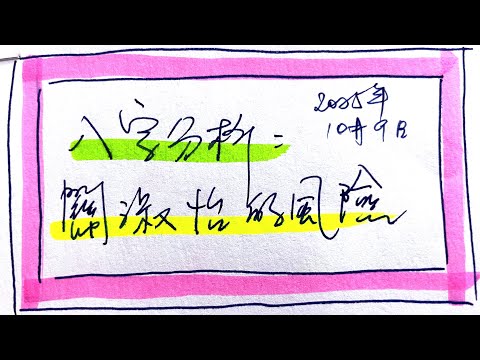 2025年
10月9日
八字分析:
關淑怡的風險